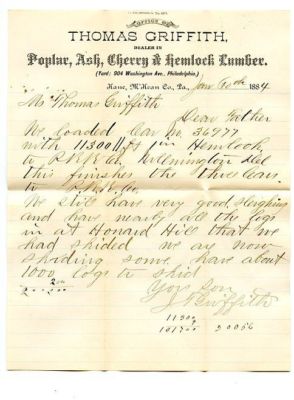 OFFICE OF
THOMAS GRIFFITH,
DEALER IN
Poplar, Ash, Cherry & Hemlock Lumber.
(Yard: 904 Washington Ave., Philadelphia.)
Kane, McKean Co., Pa., 1884
Mr Thomas Griffith
Dear Father
We loaded Car No. 36977
with 11300 ft 1 in Hemlock,
to Co. Willmington Del
this finishes the three Cars
to Co.
We still have very good Sleighing
and have nearly all the logs
in at Honard Hill that we
had skided we are now
skiding some, have about
1000 logs to skid
Your Son
Griffith
11300